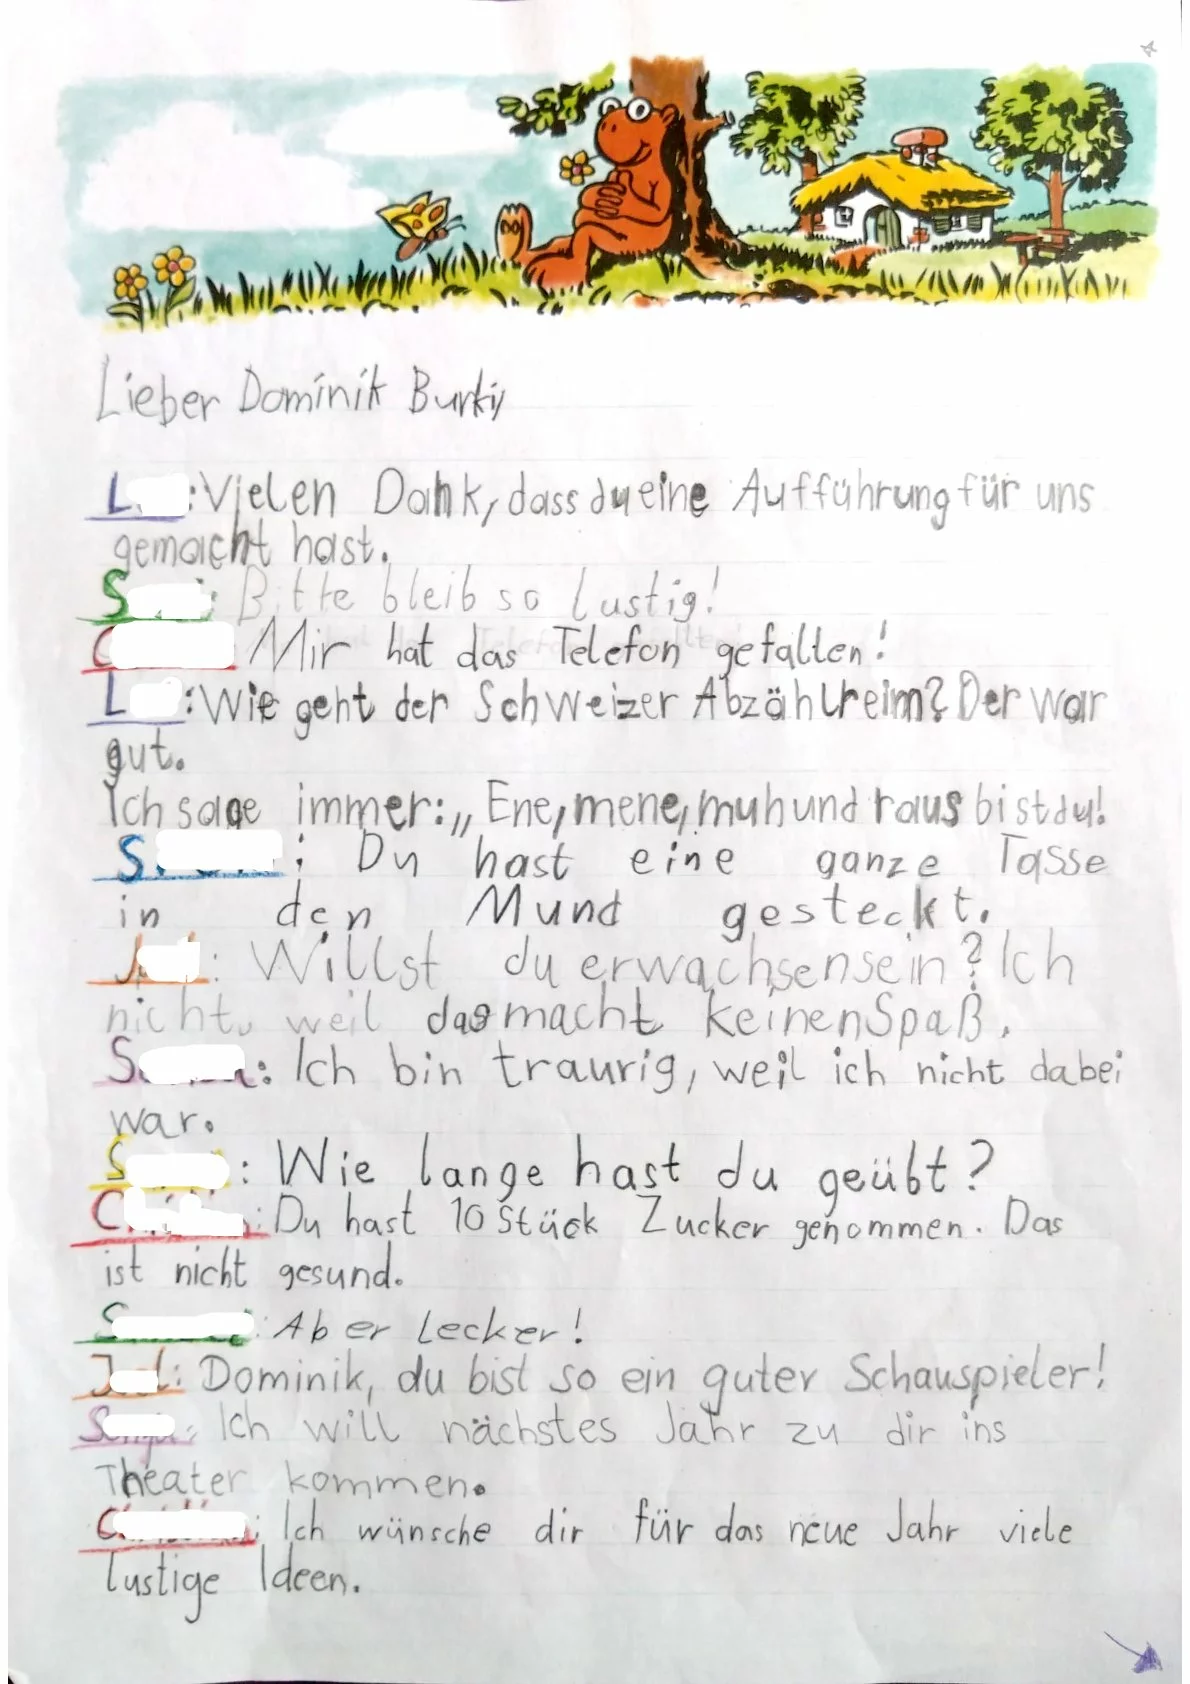 Lieber Dominik Burki,
L : Vielen Dank, dass du eine Aufführung für uns
gemacht hast.
S : Bitte bleib so lustig!
C Mir hat das Telefon gefallen!
L : Wie geht der Schweizer Abzählreim? Der war
gut.
Ich sage immer: „Ene, mene, muh und raus bist du!
S : Du hast eine ganze Tasse
in den Mund gesteckt.
J : Willst du erwachsen sein? Ich
nicht, weil das macht keinen Spaß.
S : Ich bin traurig, weil ich nicht dabei
war.
S : Wie lange hast du geübt?
C : Du hast 10 Stück Zucker genommen. Das
ist nicht gesund.
S : Aber lecker!
J : Dominik, du bist so ein guter Schauspieler!
S : Ich will nächstes Jahr zu dir ins
Theater kommen.
C : Ich wünsche dir für das neue Jahr viele
lustige Ideen.